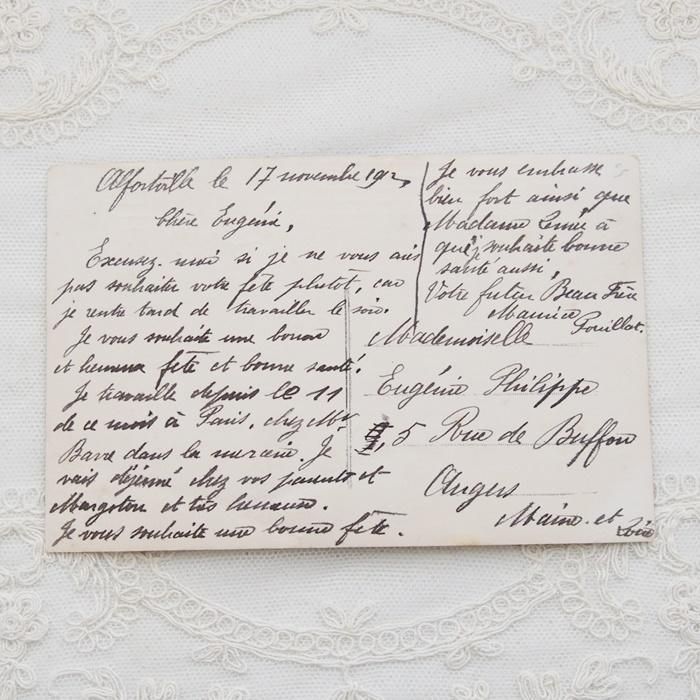 Alfortville le 17 novembre 191
Chère Eugénie,
Excusez-moi si je ne vous ais
pas souhaiter votre fête plutot, car
je rentre tard de travailler le soir.
Je vous souhaite une bonne
et heureuse fête et bonne santé.
Je travaille depuis le 11
de ce mois à Paris, chez Mr
Barre dans la Je
vais déjeuné chez vos parents et
Margoton et très heureux.
Je vous souhaite une bonne fête.
Je vous embrasse
bien fort ainsi que
Madame à
qui je souhaite bonne
santé aussi,
Votre futur Beau Frère
Maurice Pouillat.
Mademoiselle
Eugénie Philippe
5 Rue de Buffon
Angers
Maine-et
Loire